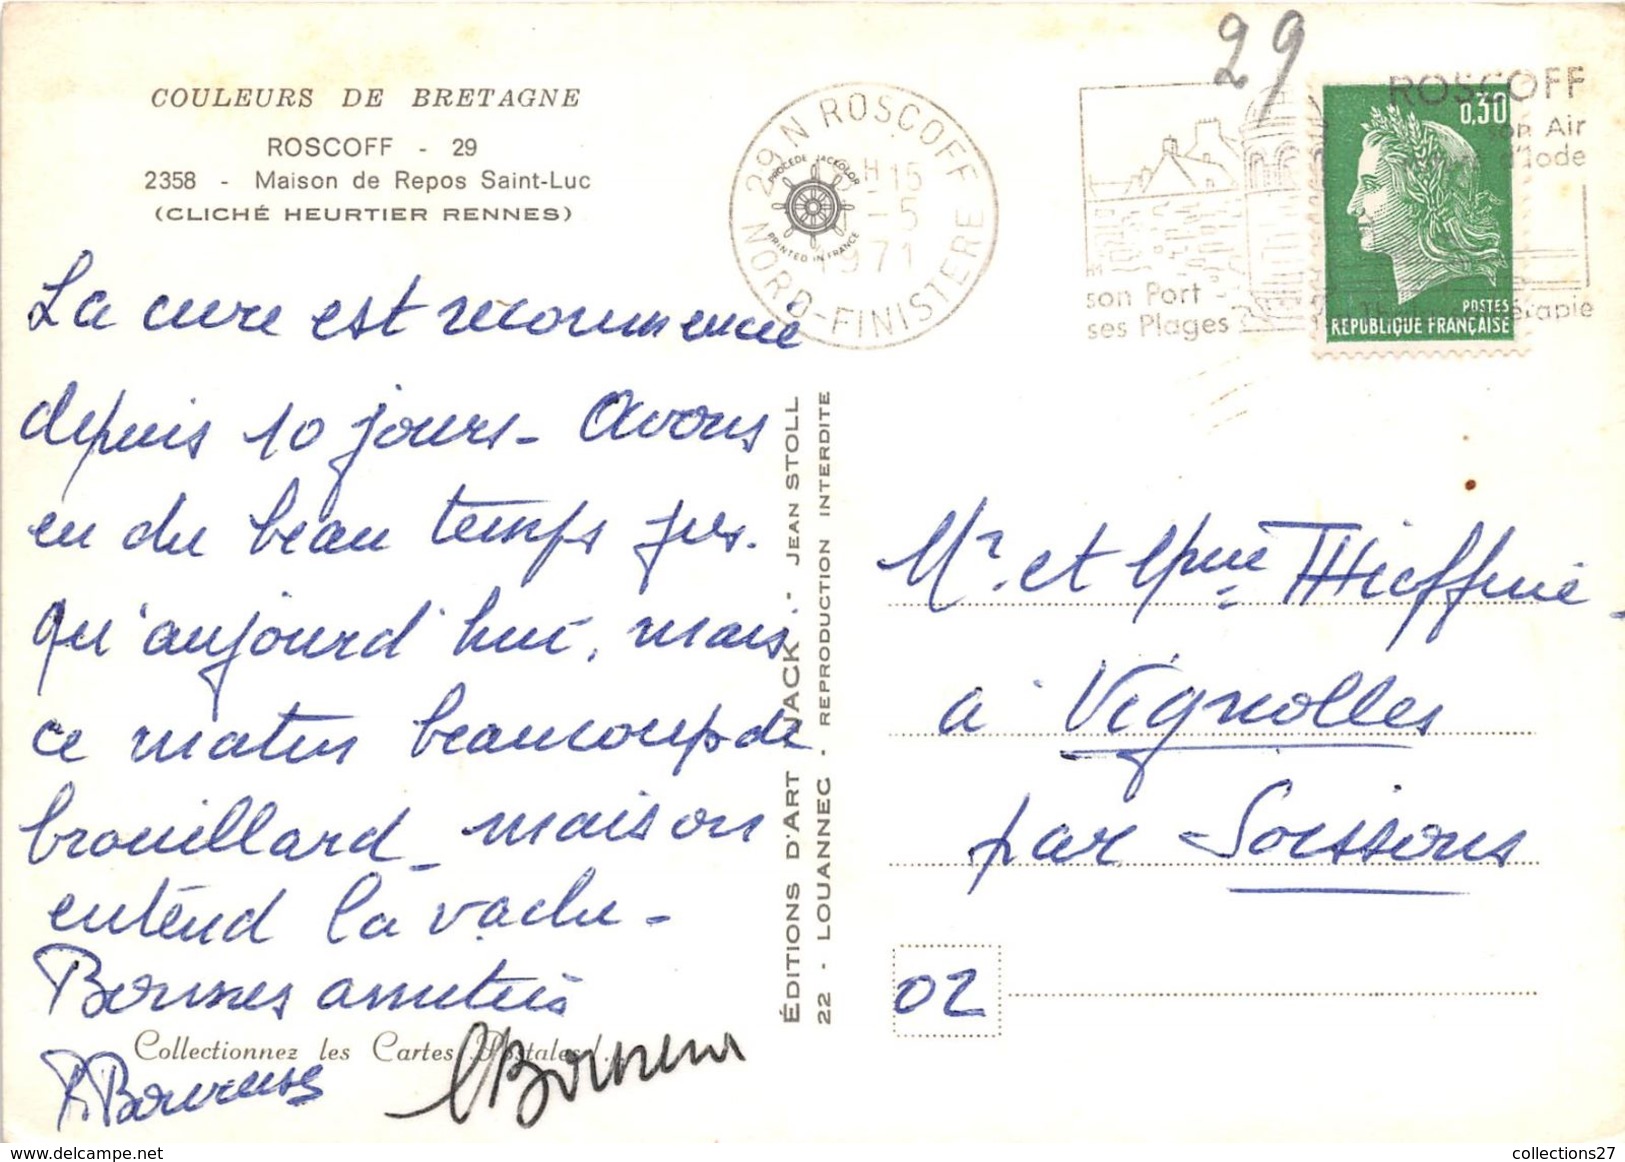 COULEURS DE BRETAGNE
ROSCOFF - 29
2358 - Maison de Repos Saint-Luc
(CLICHÉ HEURTIER RENNES)
La cure est recommencée
depuis 10 jours - Avons
eu du beau temps jus.
qu'aujourd'hui, mais
ce matin beaucoup de
brouillard - mais on
entend la vache -
Bonnes amitiés
Collectionnez les Cartes Postales !..
ÉDITIONS D'ART JACK - JEAN STOLL
22 - LOUANNEC - REPRODUCTION INTERDITE
29 N ROSCOFF
15
-5
1971
NORD-FINISTERE
PROCEDE JACKOLOR
PRINTED IN FRANCE
29
ROSCOFF
son Air
d'Iode
son Port
ses Plages
0,30
POSTES
REPUBLIQUE FRANÇAISE
Mr. et Mme
à Vignolles
par Soissons
02
collections27